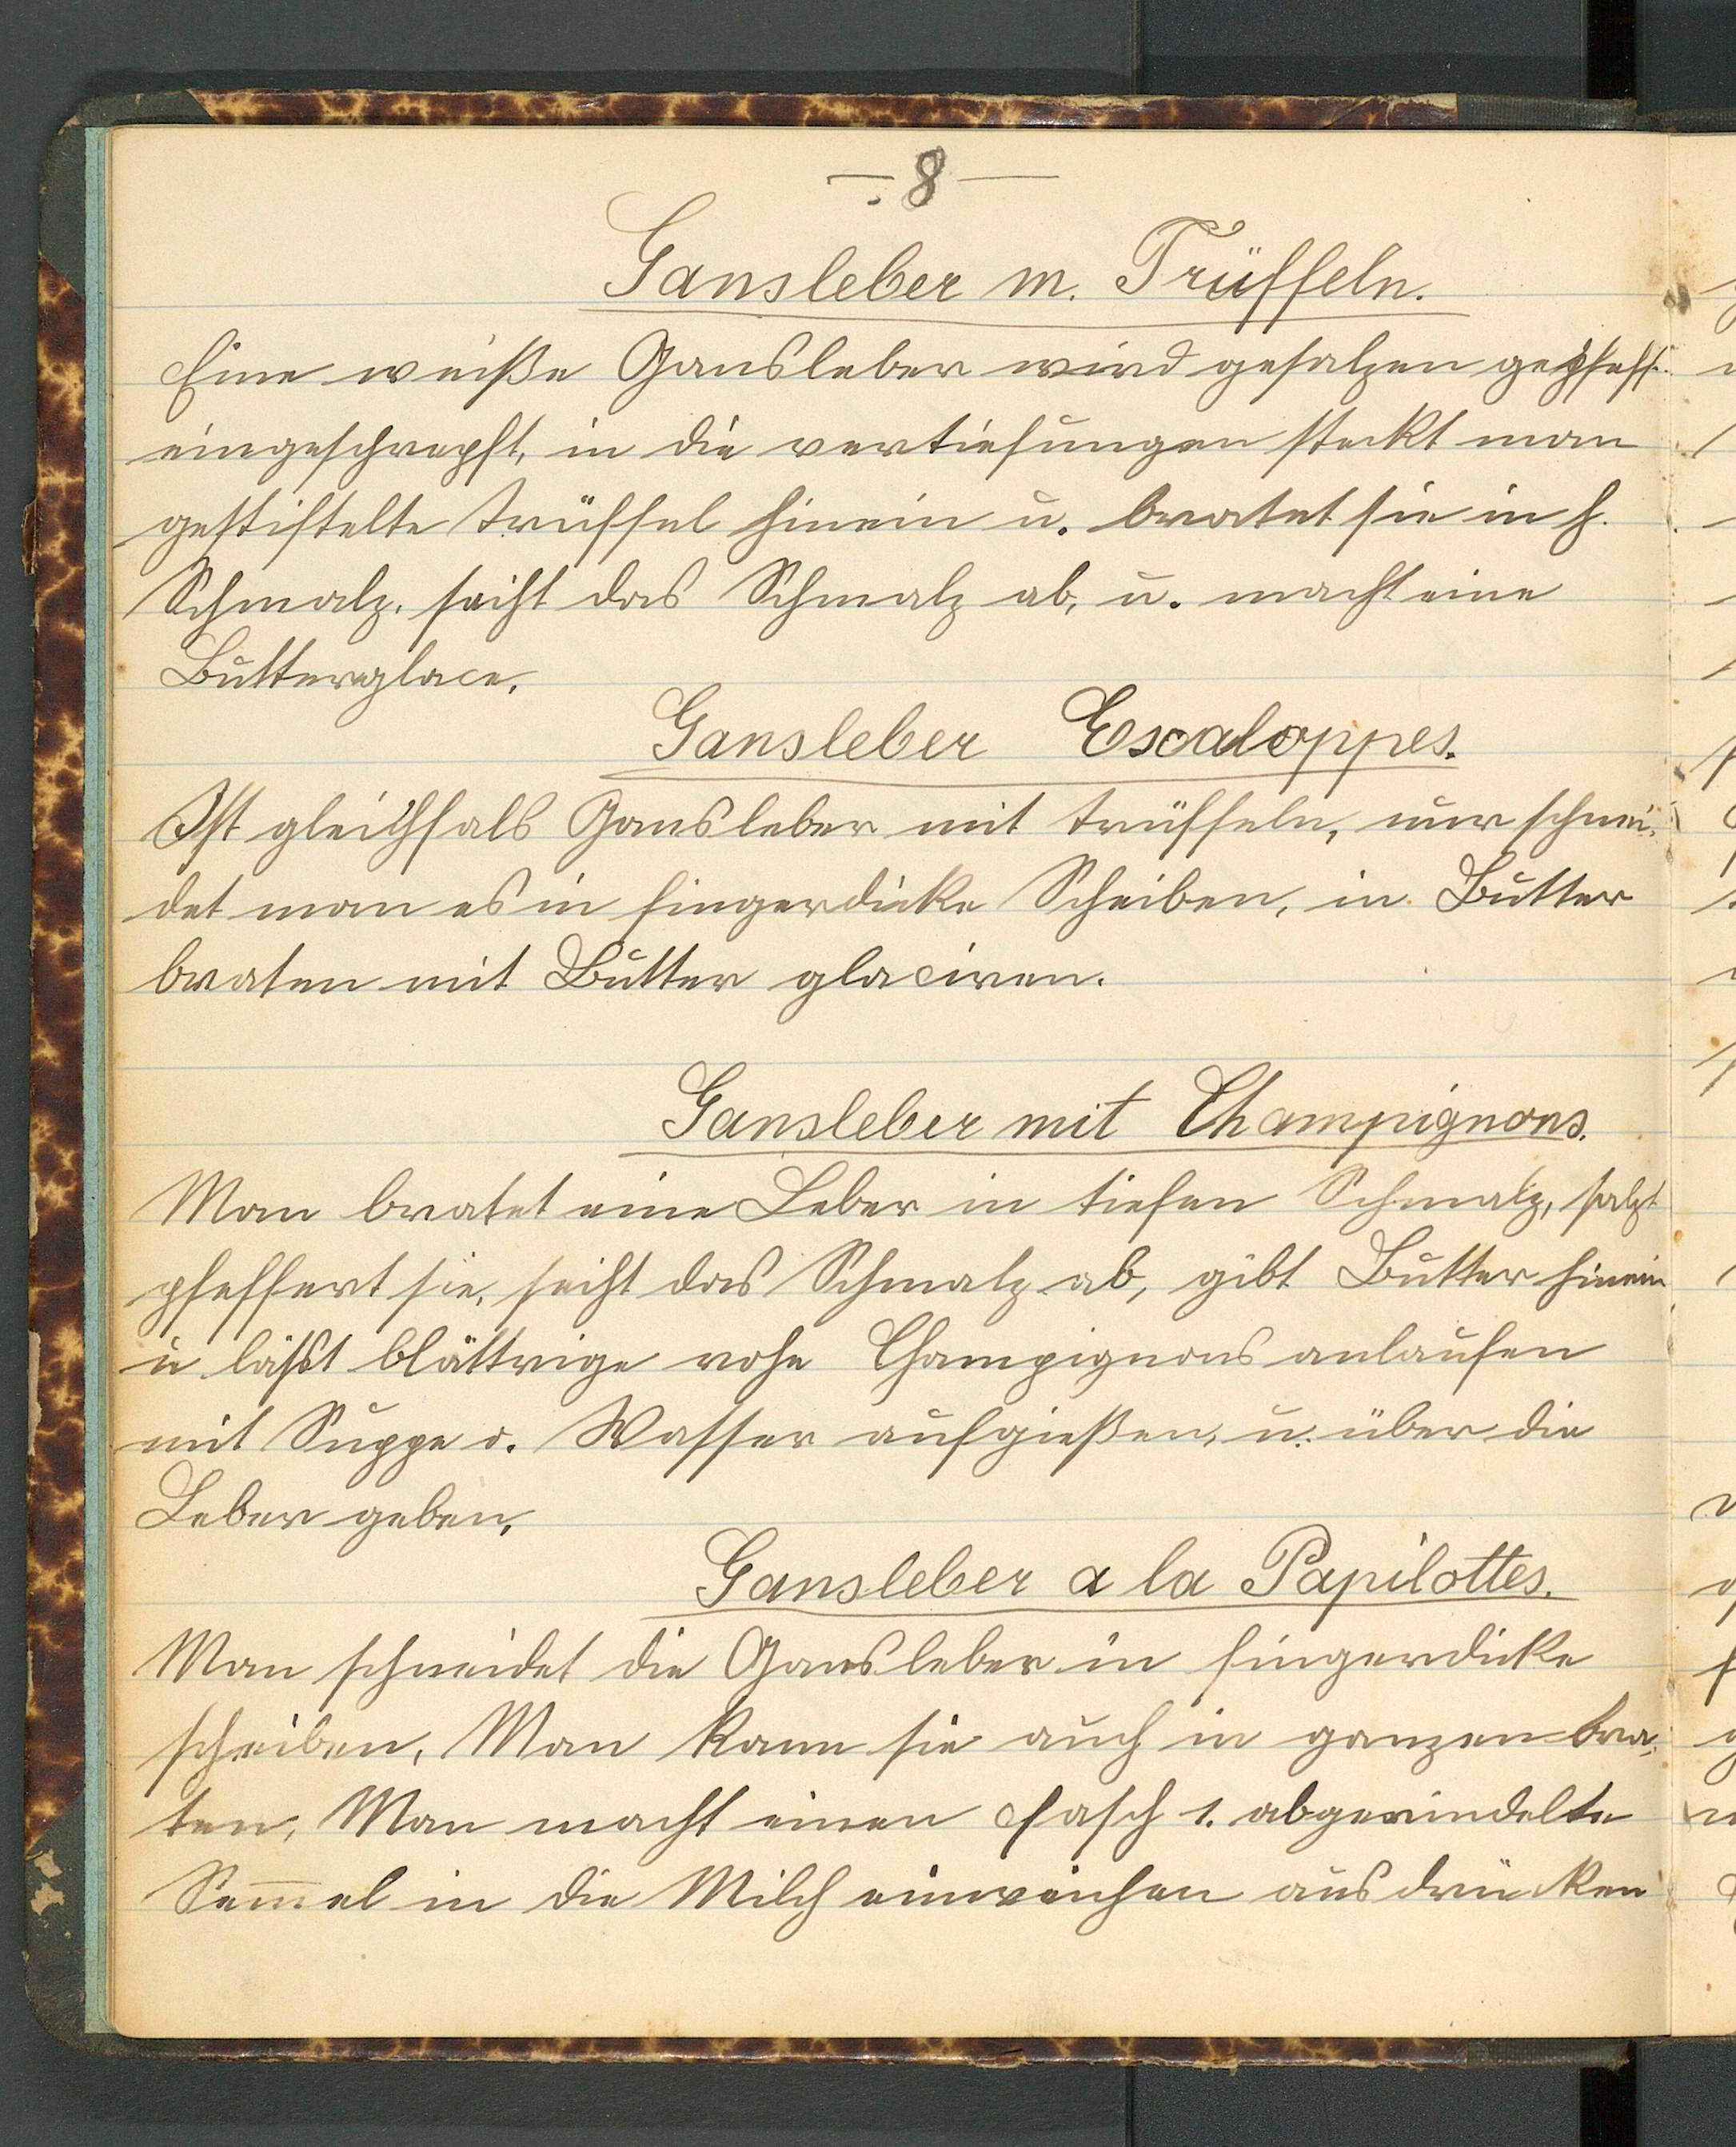 — 8 —
Gansleber m. Trüffeln.
Eine weiße Gansleber wird gesalzen gepfeff.
eingeschrepft, in die vertiefungen steckt man
gestiftelte Trüffel hinein u. bratet sie in h.
Schmalz. seiht das Schmalz ab, u. macht eine
Butterglace.
Gansleber Escaloppes.
Ist gleichfals Gansleber mit Trüffeln, nur schnei-
det man es in fingerdicke Scheiben, in Butter
braten mit Butter glaciren.
Gansleber mit Champignons.
Man bratet eine Leber in tiefen Schmalz, salzt
pfeffert sie, seiht das Schmalz ab, gibt Butter hinein
u läßt blättrige rohe Champignons anlaufen
mit Suppe o. Wasser aufgießen, u. über die
Leber geben.
Gansleber a la Papilottes.
Man schneidet die Gansleber in fingerdicke
scheiben, Man kann sie auch in ganzen bra-
ten, Man macht einen Fasch 1. abgerindelte
Sem̄el in die Milch einweichen ausdrücken